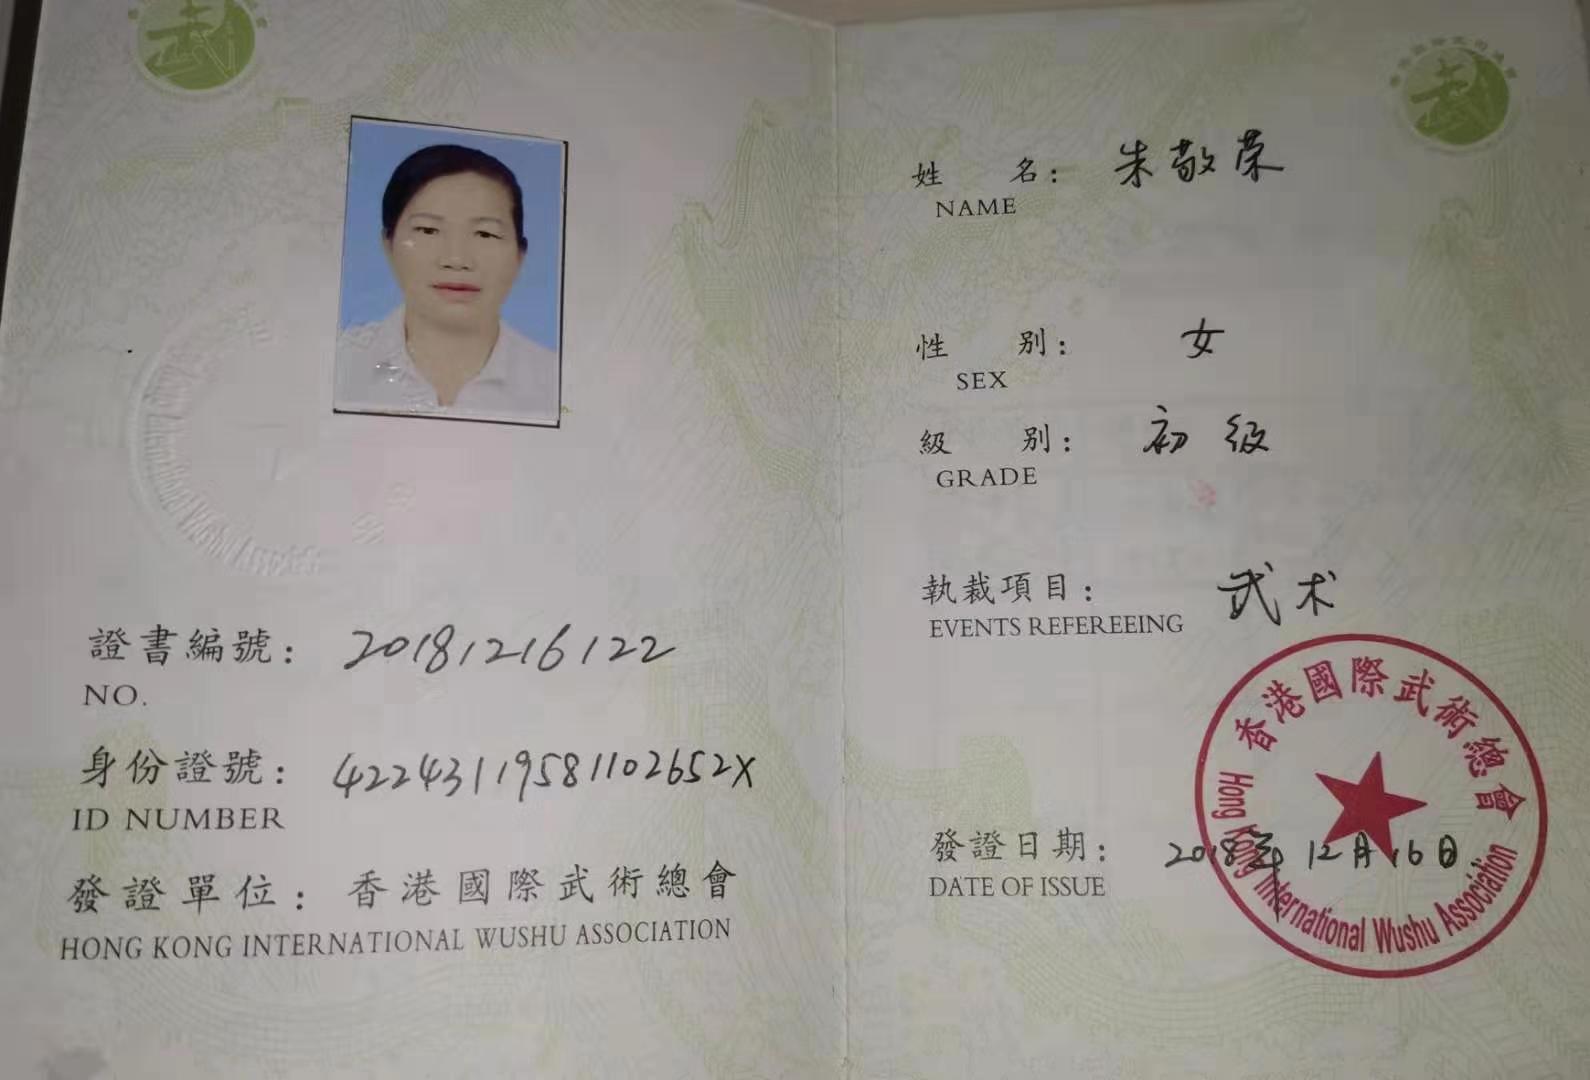 證書編號：20181216122
NO.
身份證號：42243119581102652X
ID NUMBER
發證單位：香港國際武術總會
HONG KONG INTERNATIONAL WUSHU ASSOCIATION
姓 名：朱敬荣
NAME
性 别：女
SEX
級 别：初级
GRADE
執裁項目：武术
EVENTS REFEREEING
發證日期：2018年12月16日
DATE OF ISSUE
香港國際武術總會
Hong Kong International Wushu Association